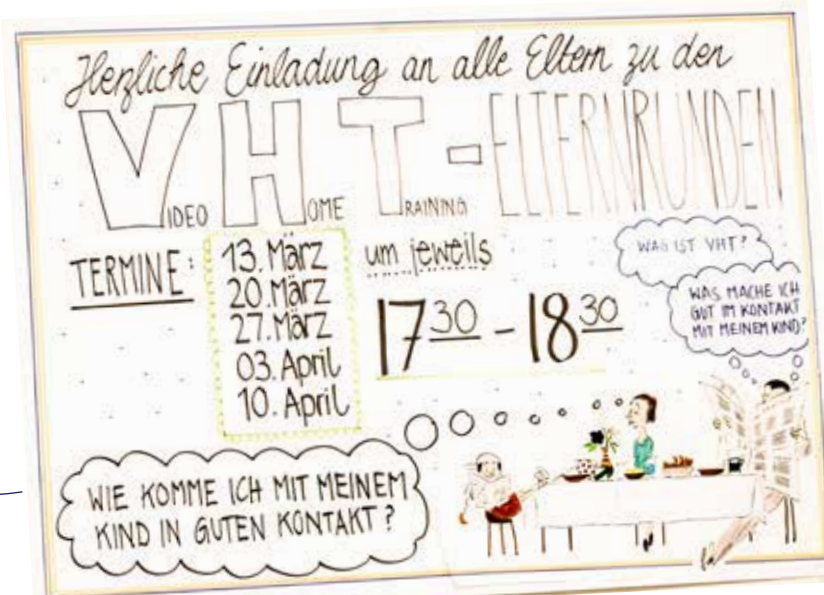 Herzliche Einladung an alle Eltern zu den
VIDEO HOME TRAINING - ELTERNRUNDEN
TERMINE:
13. März
20. März
27. März
03. April
10. April
um jeweils
17 30 - 18 30
WAS IST VHT?
WAS MACHE ICH
GUT IM KONTAKT
MIT MEINEM KIND?
WIE KOMME ICH MIT MEINEM
KIND IN GUTEN KONTAKT?